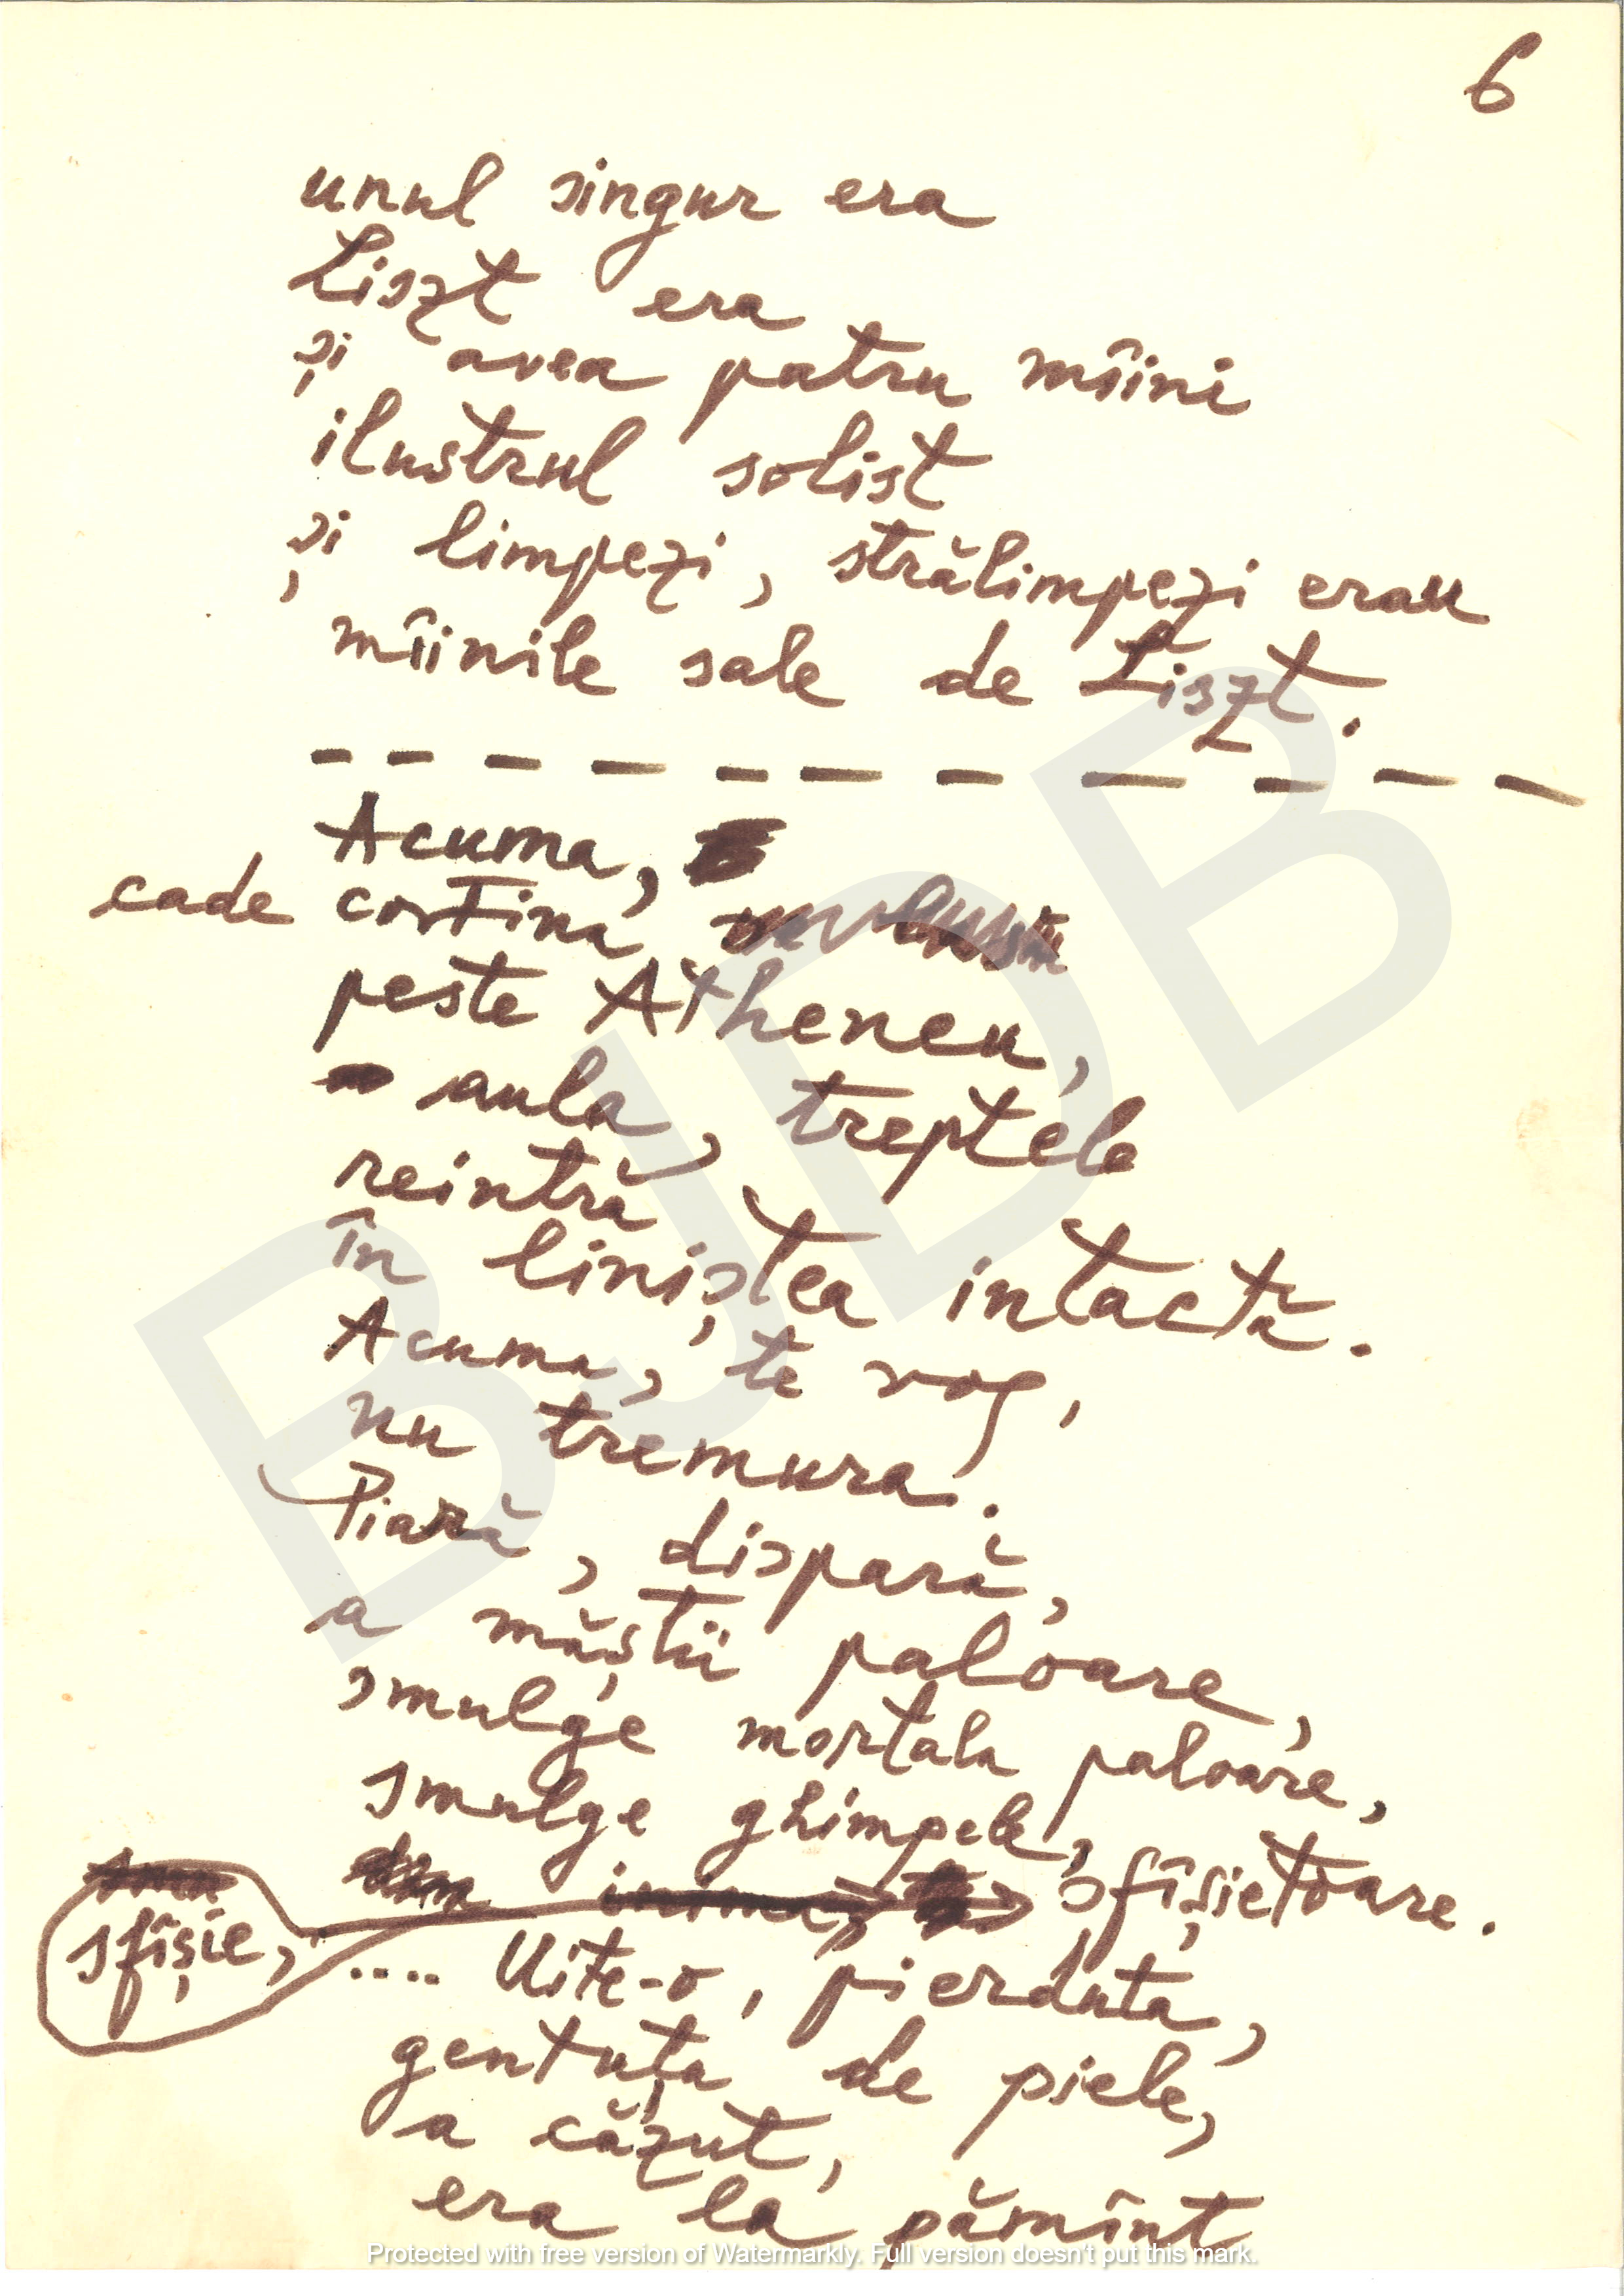 6
unul singur era
Liszt era
și avea patru mîini
ilustrul solist
și limpezi, strălimpezi erau
mîinile sale de Liszt.
Acuma,
cade cortina
peste Atheneu,
aula, treptele
reintră
în liniștea intactă.
Acuma, te rog,
nu tremura.
Piară, dispară,
a măștii paloare,
smulge mortala paloare,
smulge ghimpele, sfîșietoare.
sfîșie,
.... Uite-o, pierduta,
gentuța de piele,
a căzut,
era la pămînt
BJDB
Protected with free version of Watermarkly. Full version doesn't put this mark.